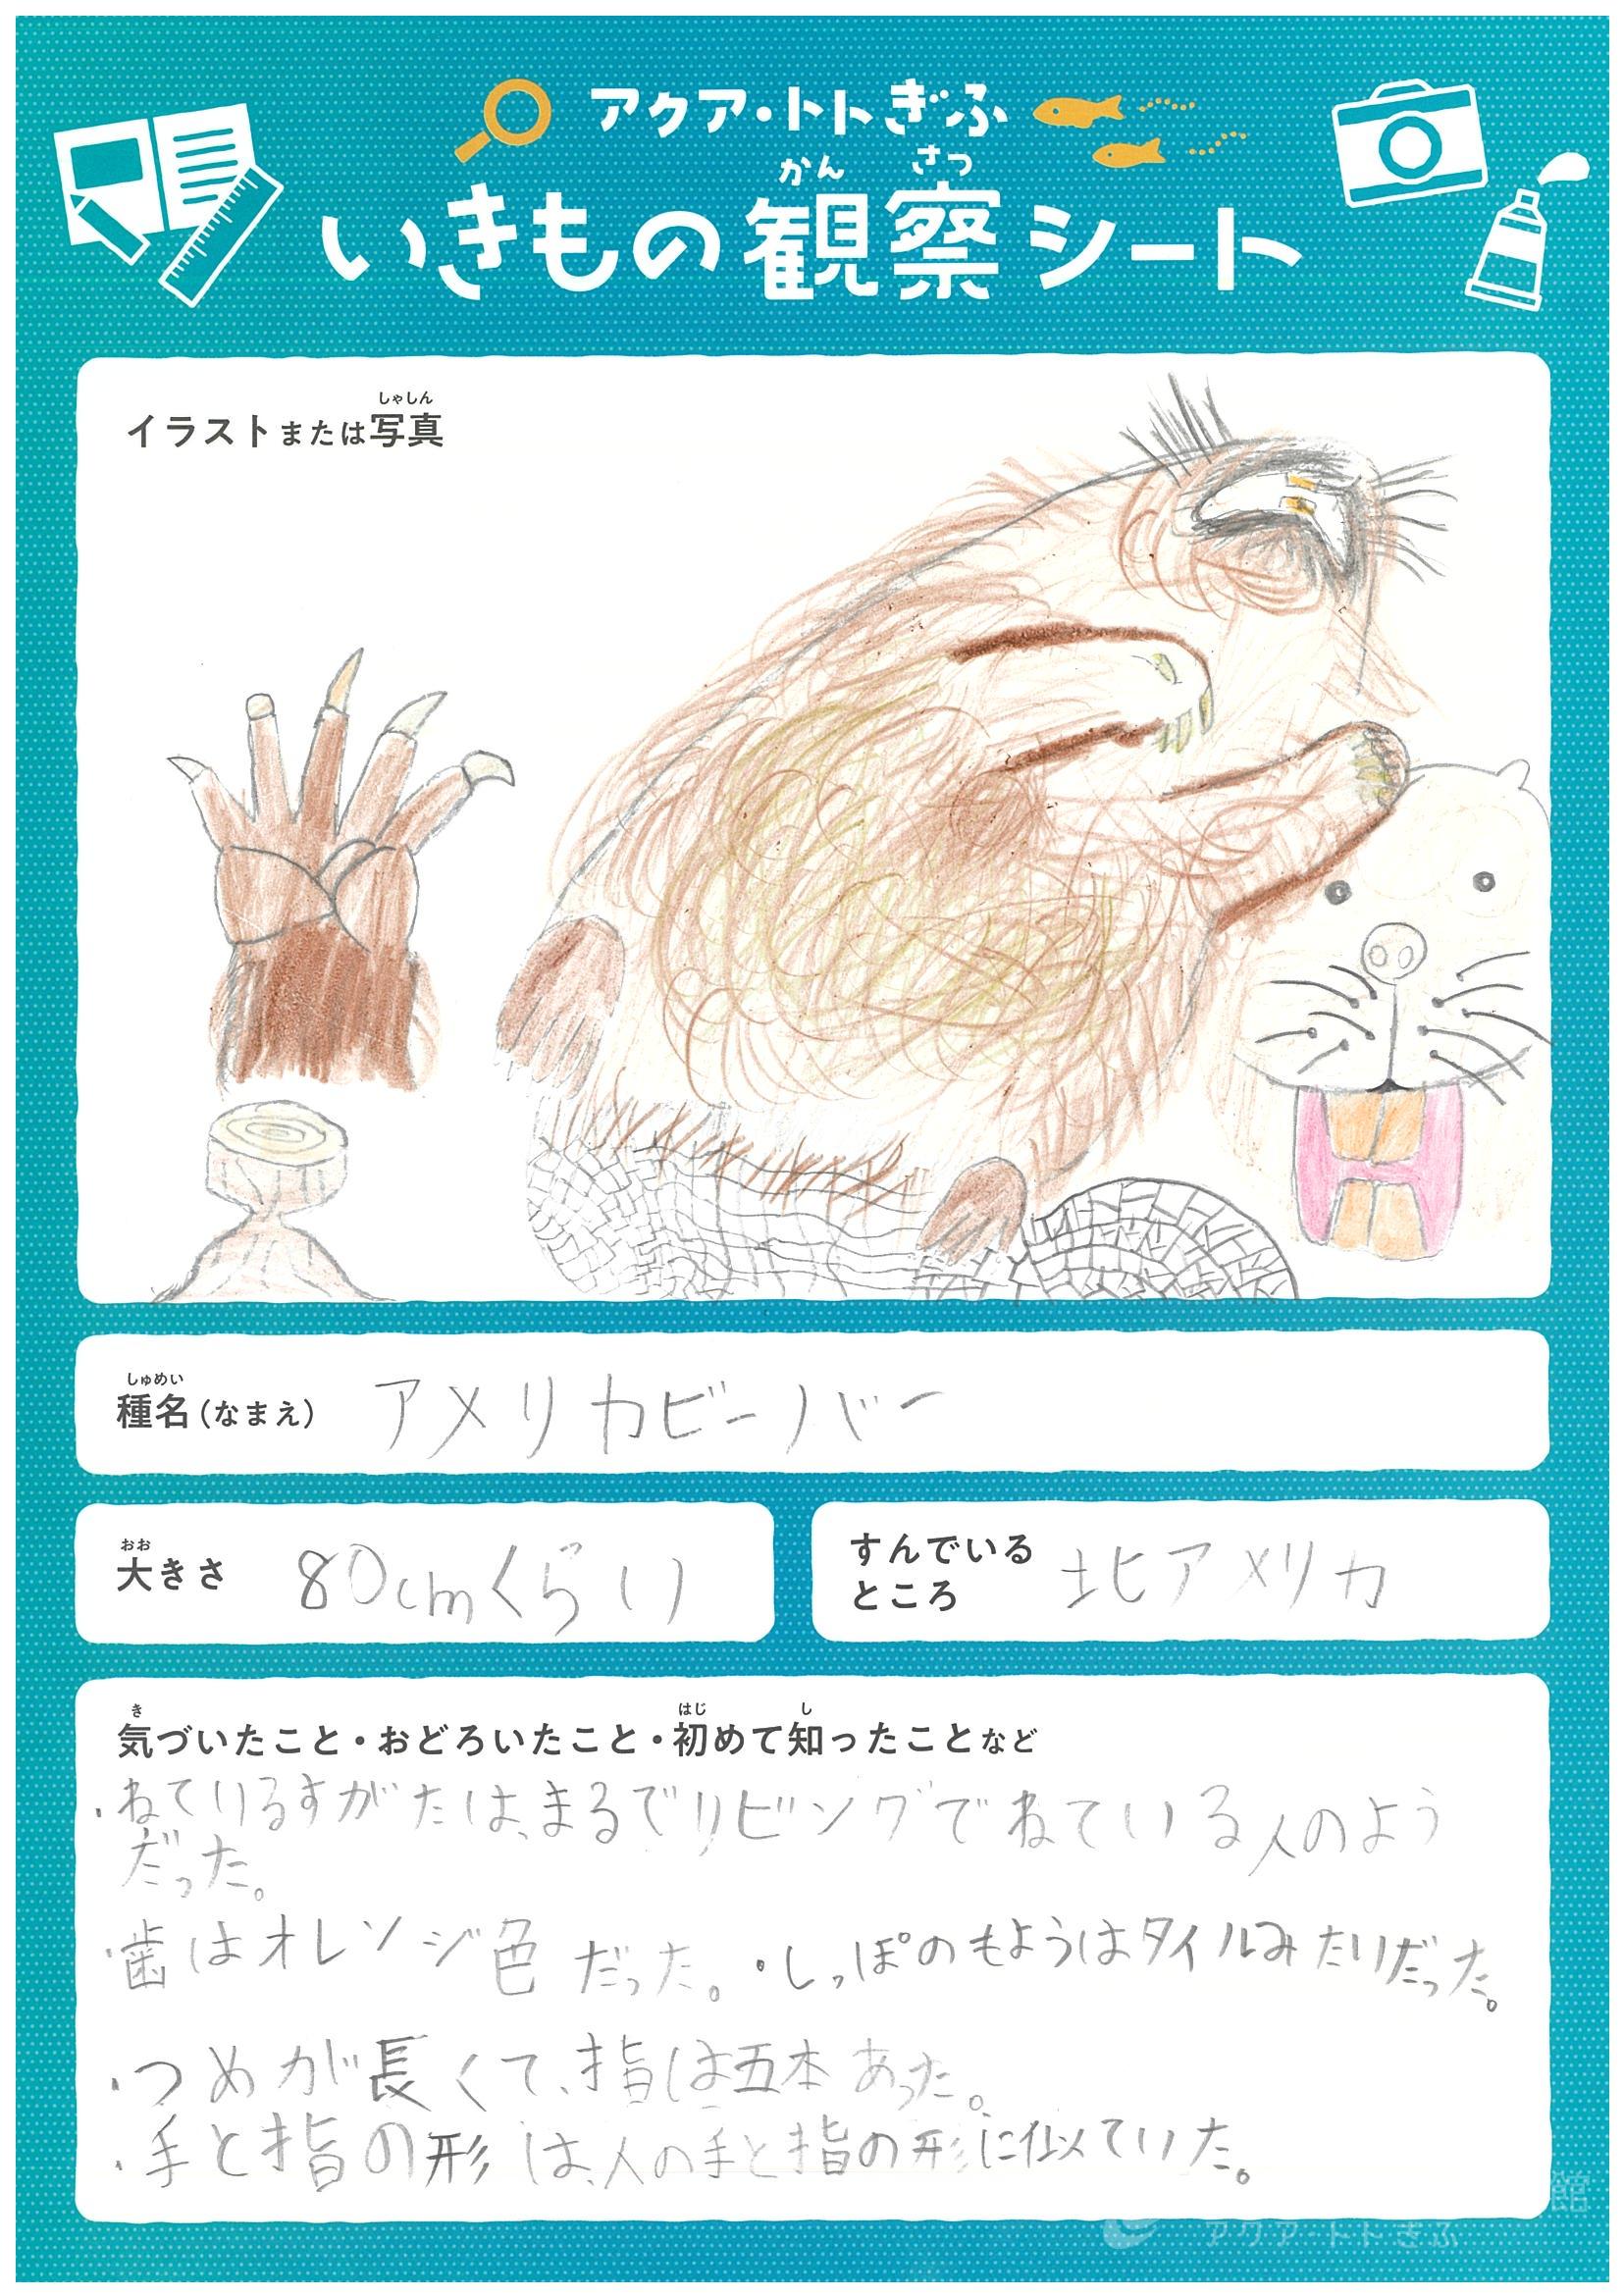 アクア・トトぎふ
かん さつ
いきもの観察シート
しゃしん
イラストまたは写真
しゅめい
種名(なまえ) アメリカビーバー
おお
大きさ 80cmくらい
すんでいる
ところ 北アメリカ
き はじ し
気づいたこと・おどろいたこと・初めて知ったことなど
・ねているすがたは、まるでリビングでねている人のよう
だった。
・歯はオレンジ色だった。・しっぽのもようはタイルみたいだった。
・つめが長くて、指は五本あった。
・手と指の形は、人の手と指の形に似ていた。
館
アクア・トトぎふ